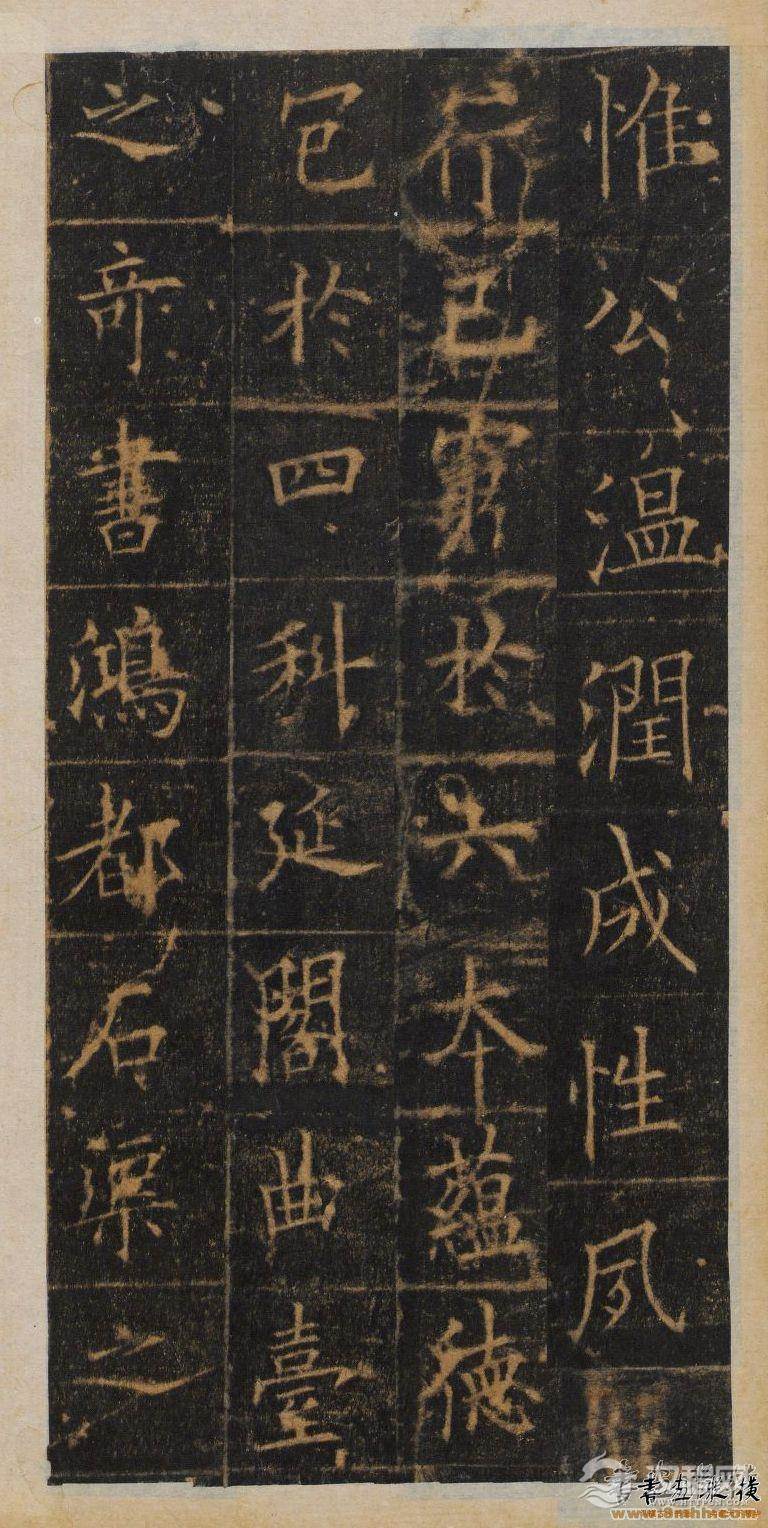 惟公温潤成性夙
行已窮於六本蘊德
包於四科延閣曲臺
之奇書鴻都石渠之
書畫縱橫
www.8mhh.com